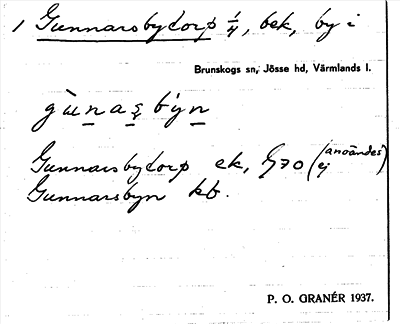 1 Gunnarsbytorp 1/4, bek, by i
Brunskogs sn, Jösse hd, Värmlands l.
gùnaș by̍n
Gunnarsbytorp ek, G70 (användes ej)
Gunnarsbyn kb.
P. O. GRANÉR 1937.